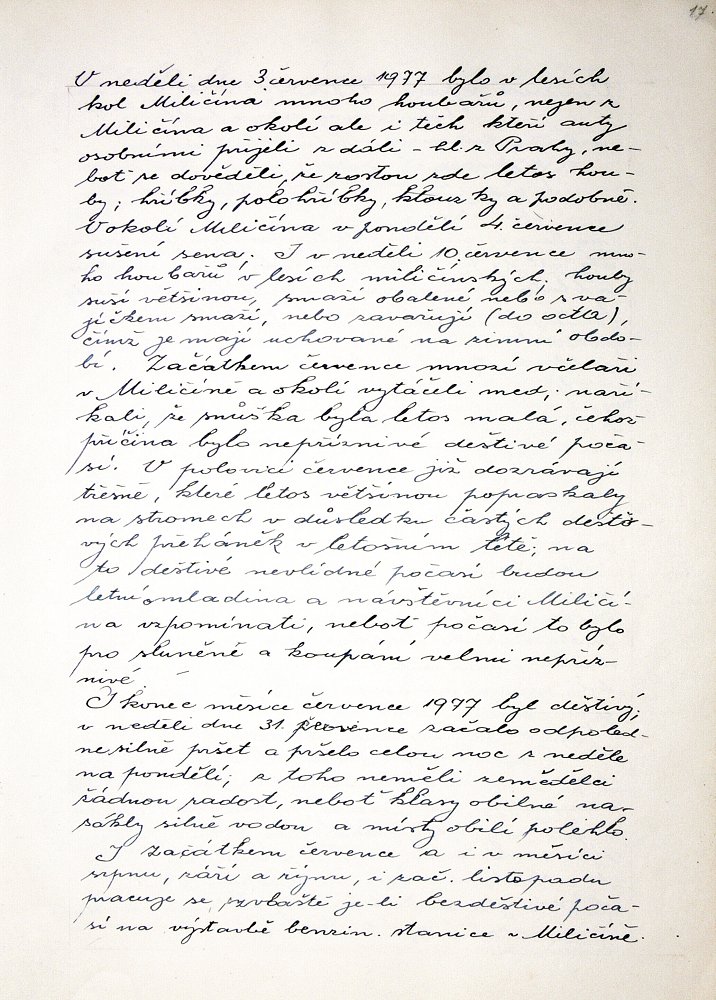 17.
V neděli dne 3 července 1977 bylo v lesích
kol Miličína mnoho houbařů, nejen z
Miličína a okolí ale i těch kteří auty
osobními přijeli z dáli - hl. z Prahy, ne-
boť se dověděli, že rostou zde letos hou-
by; hřibky, polohřibky, klouzky a podobně.
V okolí Miličína v pondělí 4. července
sušení sena. I v neděli 10. července mno-
ho houbařů v lesích miličínských. houby
suší většinou, smaží obalené nebo s va-
jíčkem smaží, nebo zavařují (do octa),
čímž je mají uchované na zimní obdo-
bí. Začátkem července mnozí včelaři
v Miličíně a okolí vytáčeli med, naří-
kali, že snůška byla letos malá, čehož
příčina bylo nepříznivé deštivé poča-
sí. V polovici července již dozrávají
třešně, které letos většinou popraskaly
na stromech v důsledku častých dešťo-
vých přeháněk v letošním létě; na
to deštivé nevlídné počasí budou
letní omladina a návštěvníci Miličí-
na vzpomínati, neboť počasí to bylo
pro slunění a koupání velmi nepříz-
nivé
I konec měsíce července 1977 byl deštivý;
v neděli dne 31. července začalo odpoled-
ne silně pršet a pršelo celou noc z neděle
na pondělí; z toho neměli zemědělci
žádnou radost, neboť klasy obilné na-
sákly silně vodou a místy obilí polehlo.
I začátkem července a i v měsíci
srpnu, září a říjnu, i zač. listopadu
pracuje se, zvláště je-li bezdeštivé poča-
sí na výstavbě benzin. stanice v Miličíně.